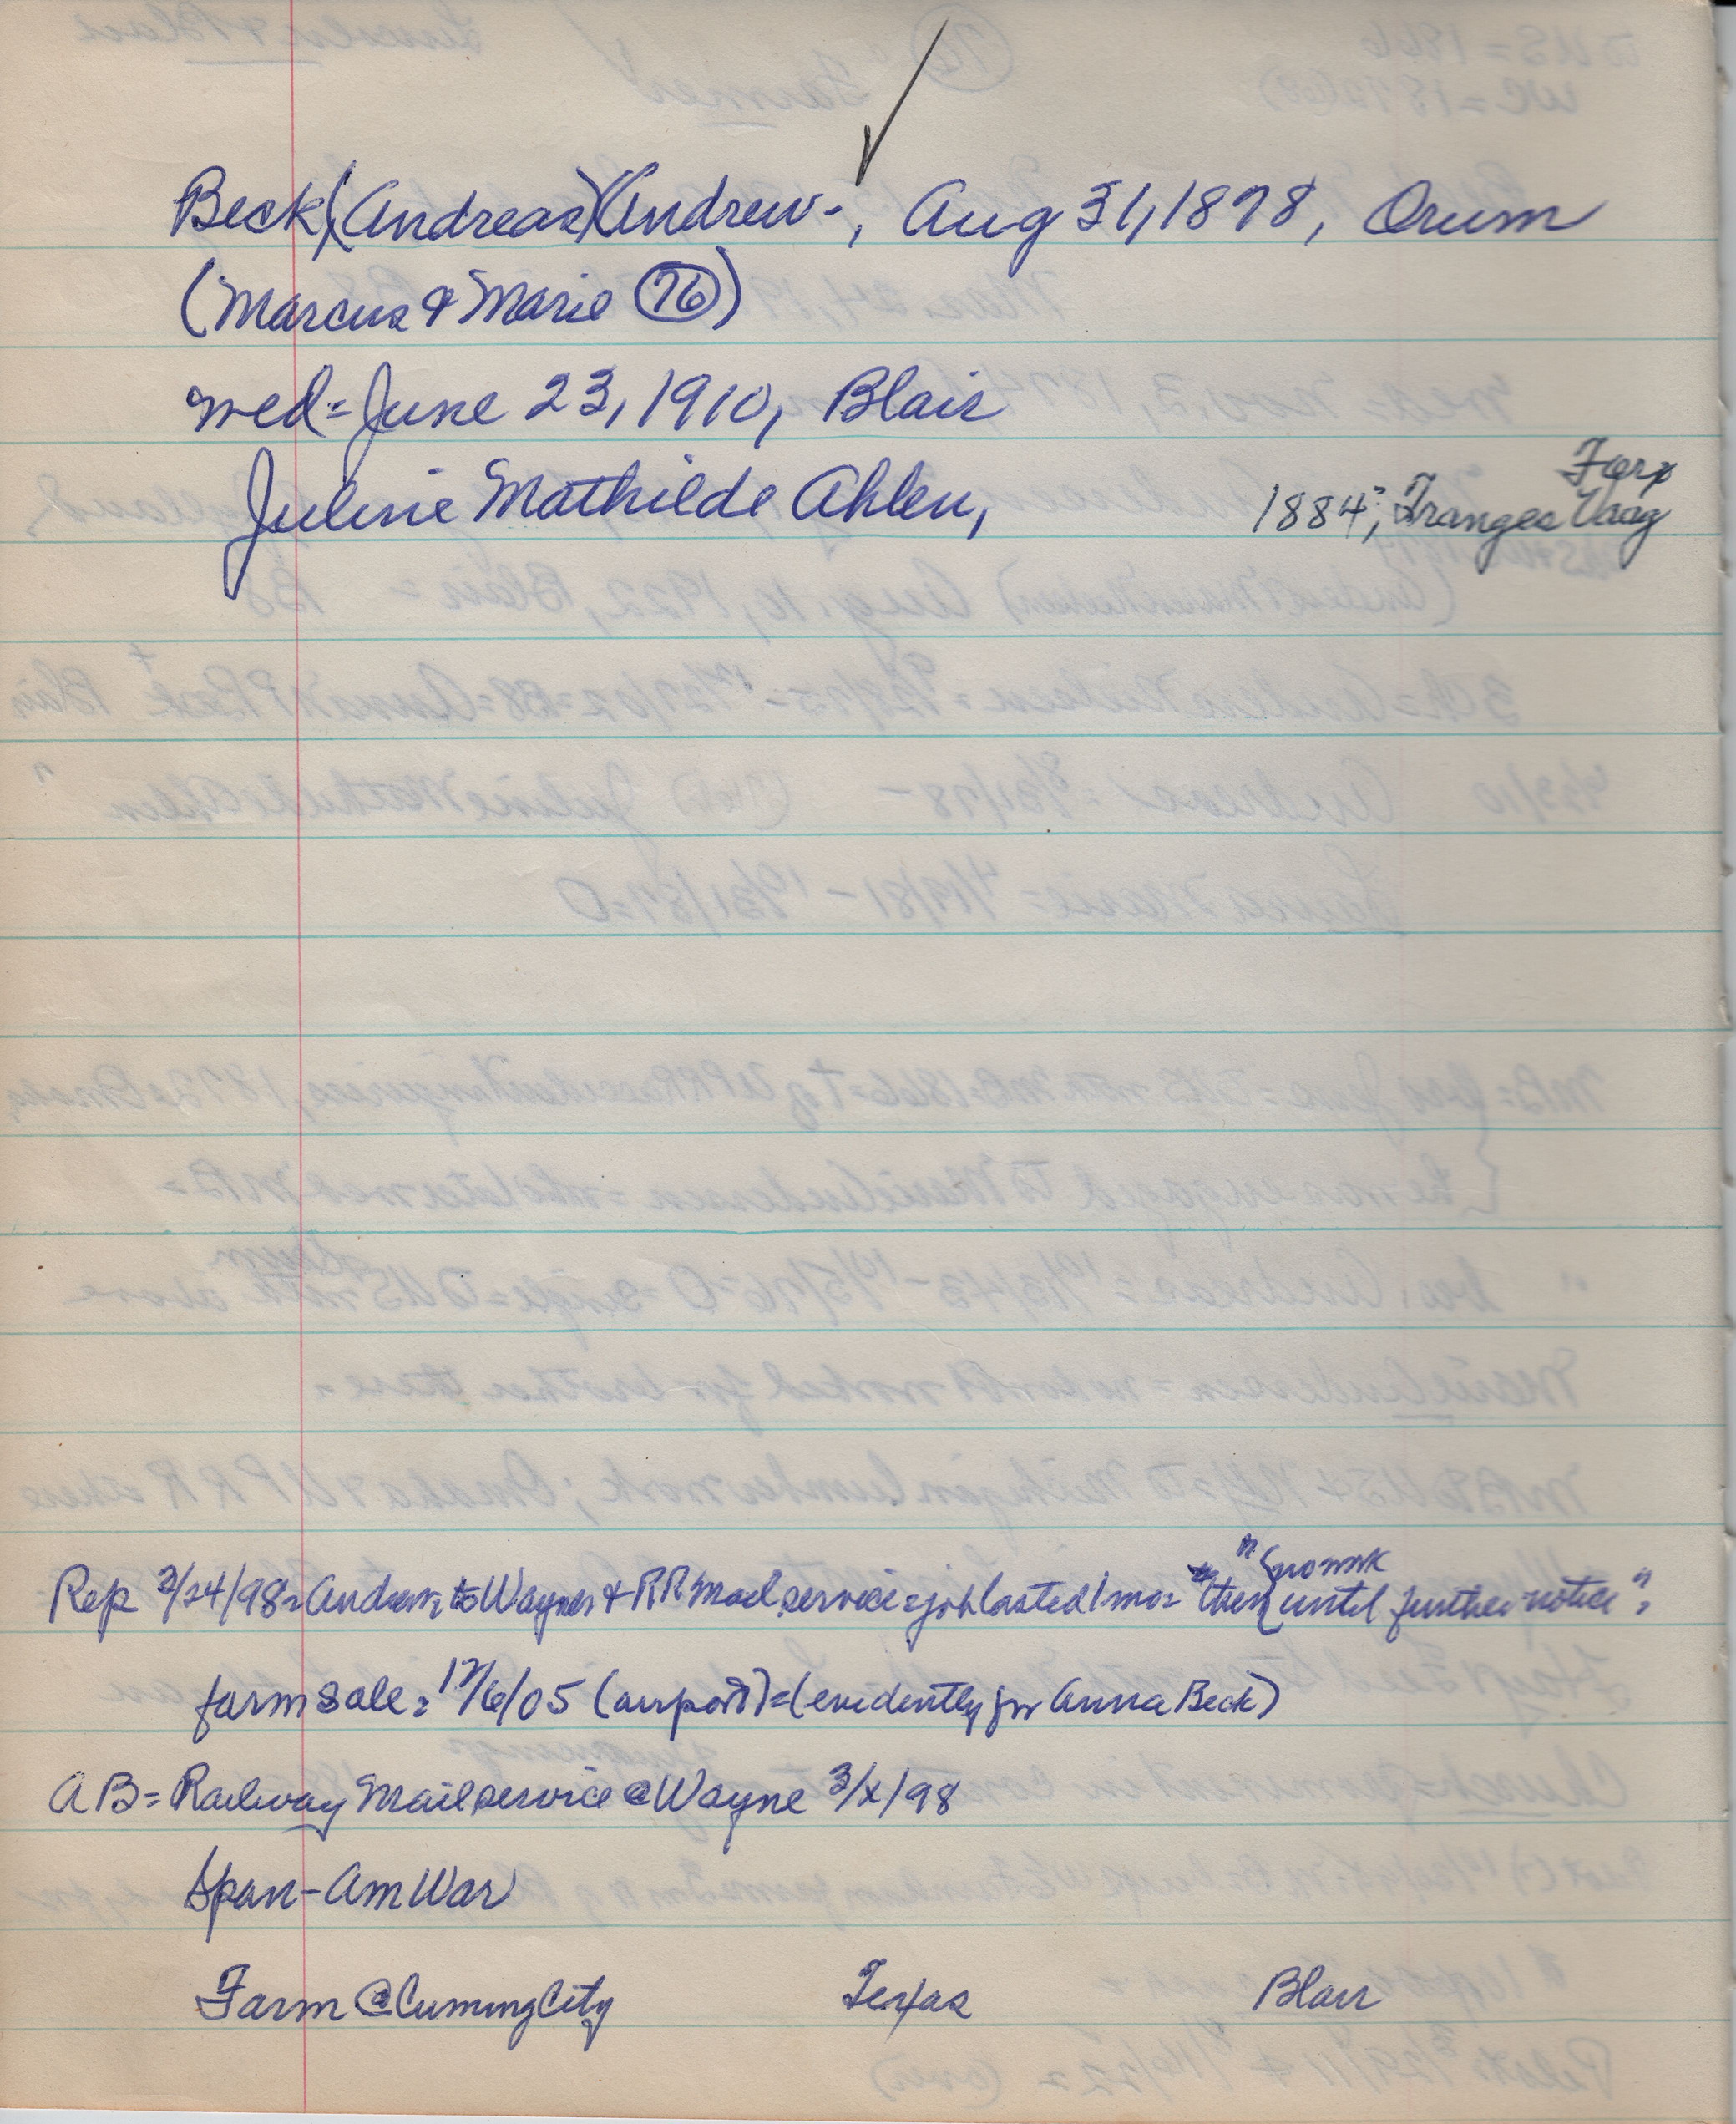 Beck (Andreas)(Andrew-, Aug 31, 1878, Orum
(Marcus & Marie 76)
med = June 23, 1910, Blair
Juline Mathilde Ahlen, 1884; Tranges Vaag
Farx
Rep 2/24/98 = Andrew to Wayne & RR Mail service = job lasted 1 mo = "then no work until further notice".
farm sale = 12/6/05 (airport) = (evidently for Anna Beck)
AB = Railway Mail service @ Wayne 3/x/98
Span-Am War
Farm @ Cuming City Texas Blair